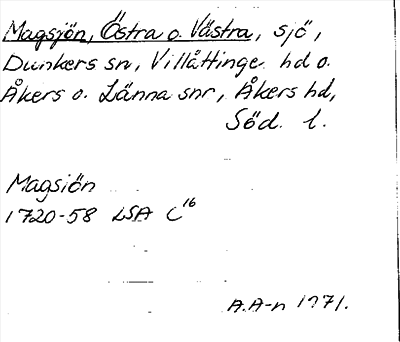 Magsjön, Östra o. Västra, sjö,
Dunkers sn, Villåttinge hd o.
Åkers o. Länna snr, Åkers hd,
Söd. l.
Magsiön
1720-58 LSA C16
A.A-n 1971.